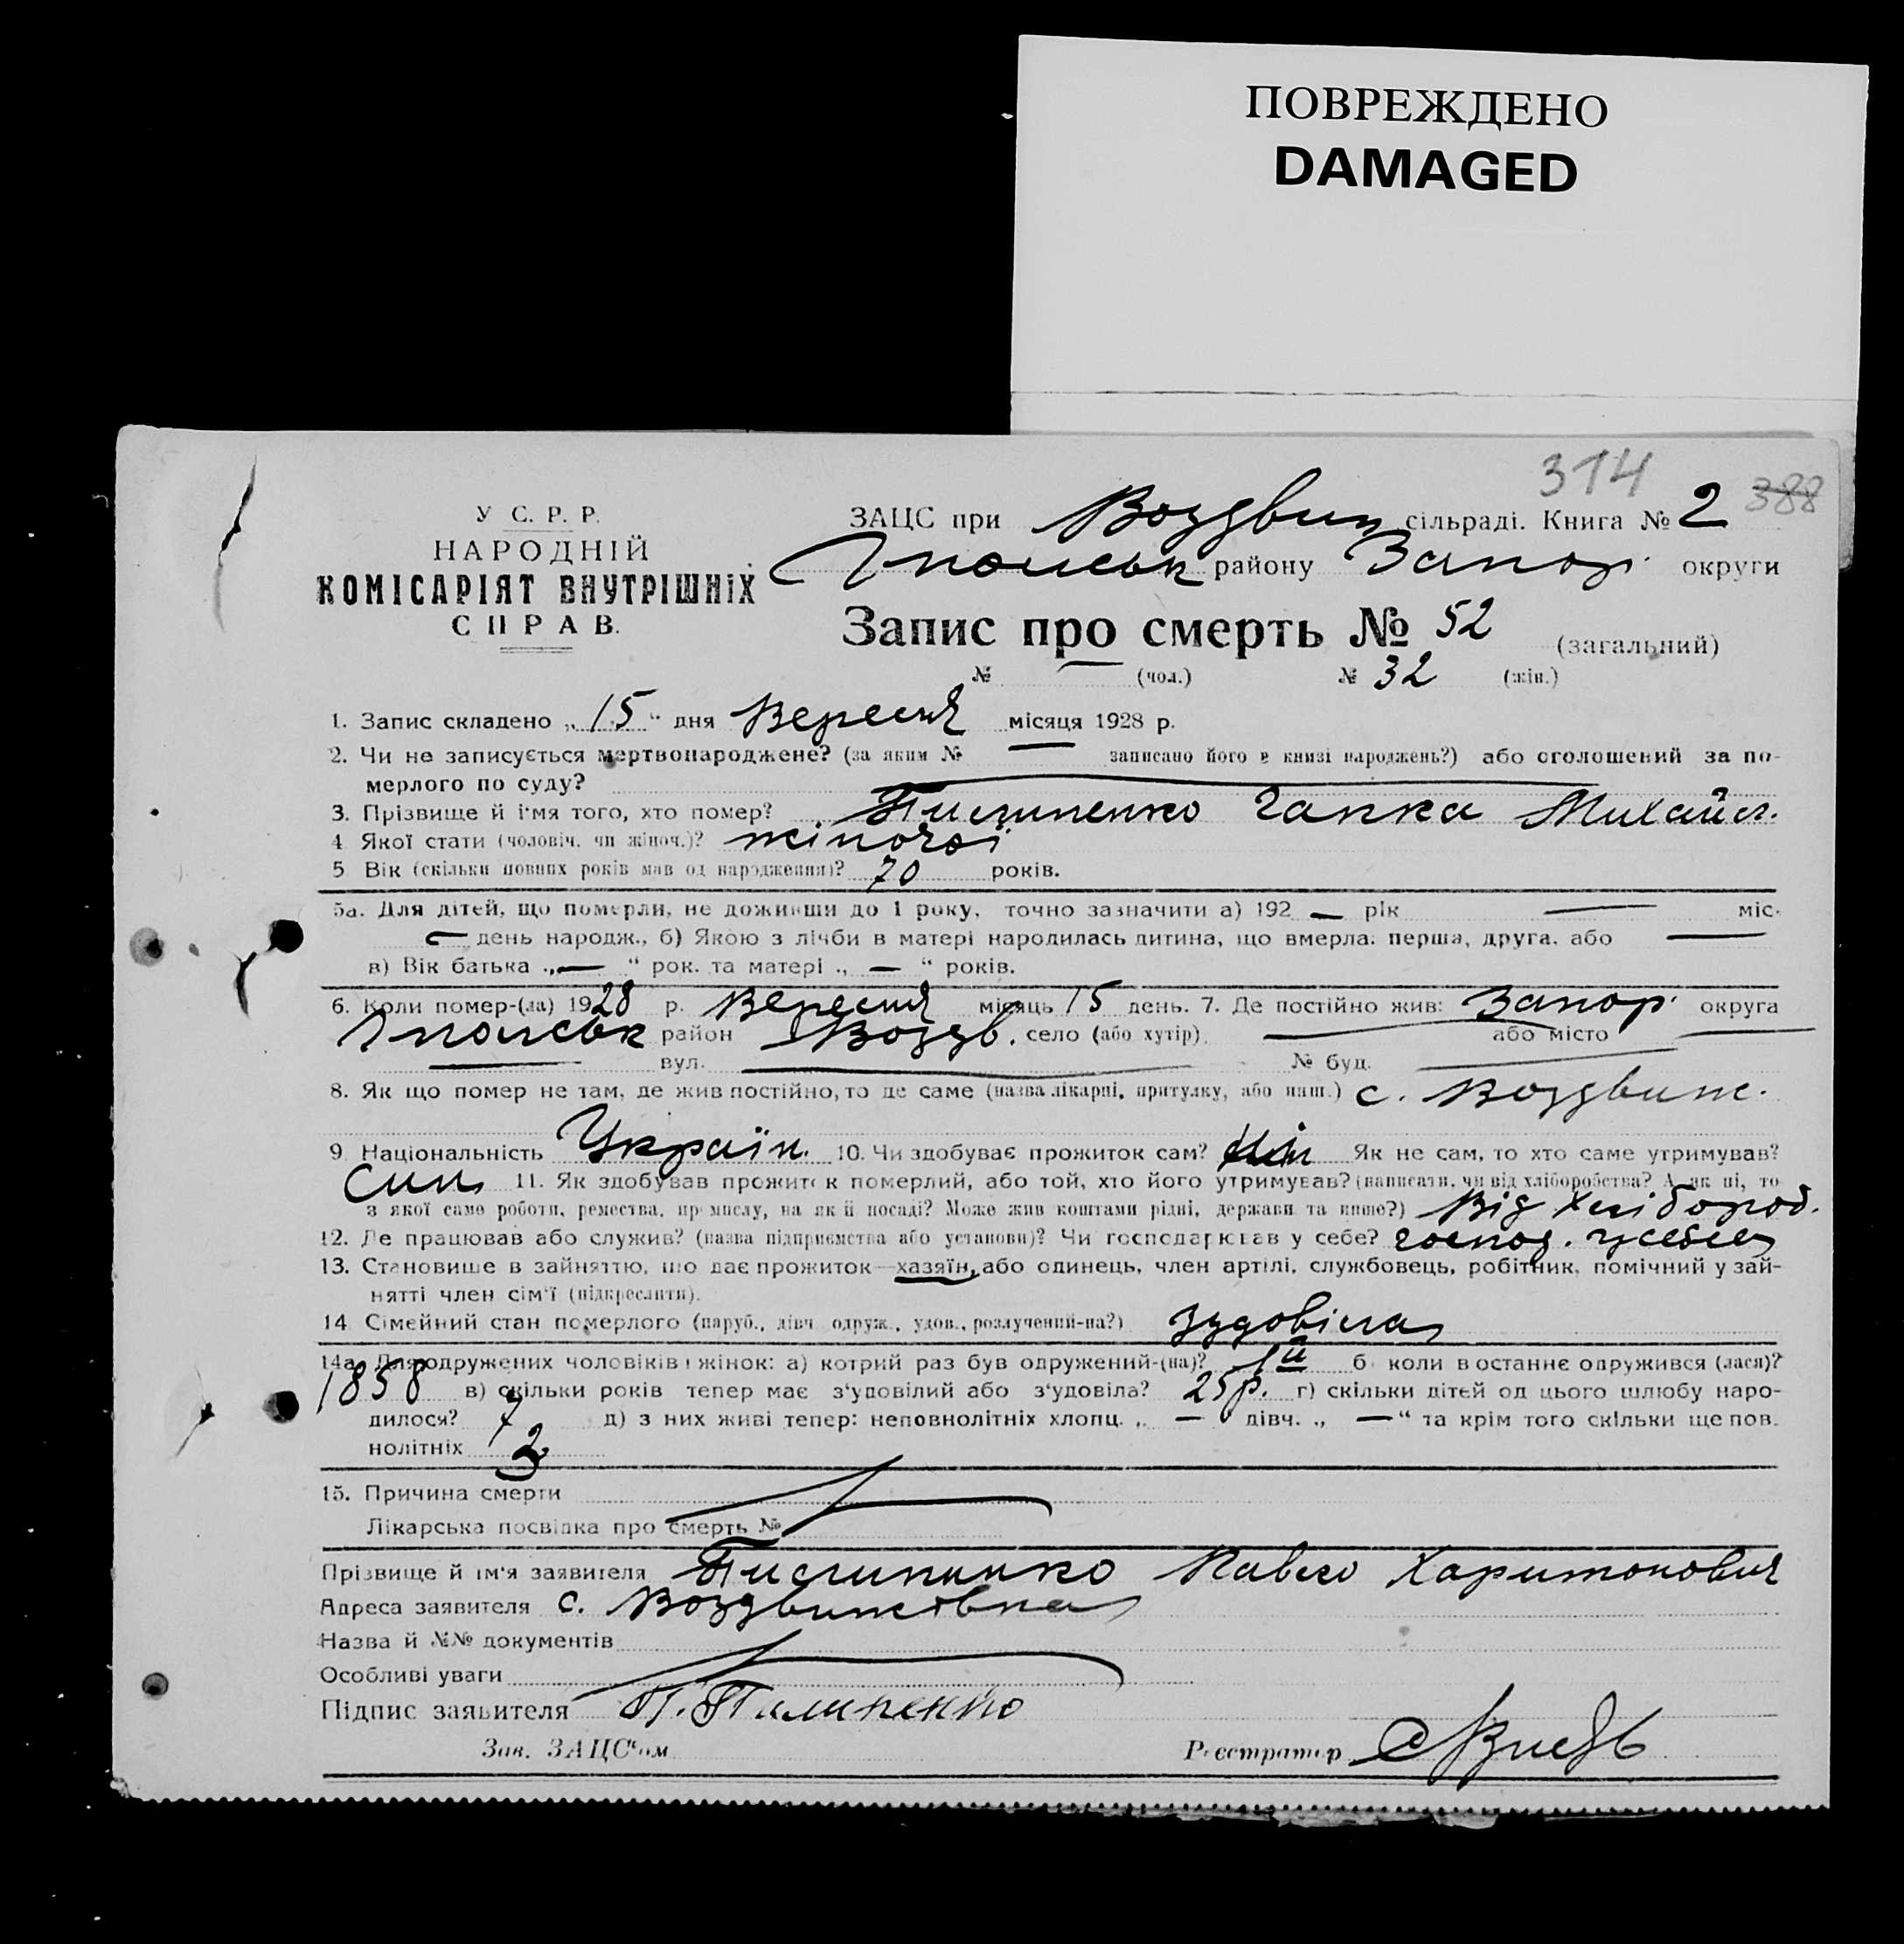 ПОВРЕЖДЕНО
DAMAGED
314
388
У С. Р. Р.
НАРОДНІЙ
КОМІСАРІЯТ ВНУТРІШНІХ
СПРАВ.
ЗАЦС при Воздвиж сільраді. Книга № 2
району Запор. округи
Запис про смерть № 52 (загальний)
№ — (чол.) № 32 (жін.)
1. Запис складено „15“ дня Вересня місяця 1928 р.
2. Чи не записується мертвонароджене? (за яким № — записано його в книзі народжень?) або оголошений за по-
мерлого по суду? —
3. Прізвище й ім'я того, хто помер? Пилипенко Гапка Михайл.
4 Якої стати (чоловіч. чи жіноч.)? жіночої
5 Вік (скільки повних років мав од народження)? 70 років.
5а. Для дітей, що померли, не доживши до 1 року, точно зазначити а) 192 — рік — міс.
— день народж., б) Якою з лічби в матері народилась дитина, що вмерла: перша, друга, або —
в) Вік батька „—“ рок. та матері „—“ років.
6. Коли помер-(ла) 1928 р. Вересня місяць 15 день. 7. Де постійно жив: Запор. округа
район Воздв. село (або хутір) — або місто —
— вул. — № буд. —
8. Як що помер не там, де жив постійно, то де саме (назва лікарні, притулку, або инш.) с. Воздвиж.
9. Національність Україн. 10. Чи здобуває прожиток сам? Ні Як не сам, то хто саме утримував?
Син 11. Як здобував прожиток померлий, або той, хто його утримував? (написати, чи від хліборобства? А як ні, то
з якої само роботи, ремества, промислу, на якій посаді? Може жив коштами рідні, держави та инше?) Від Хлібороб.
12. Де працював або служив? (назва підприємства або установи)? Чи господарював у себе? господ. усебе
13. Становище в зайняттю, що дає прожиток—хазяїн, або одинець, член артілі, службовець, робітник, помічний у зай-
нятті член сім'ї (підкреслити).
14 Сімейний стан померлого (паруб., дівч одруж., удов., розлучений-на?) зудовіла
14а. Для одружених чоловіків і жінок: а) котрий раз був одружений-(на)? 1й б коли в останнє одружився (лася)?
1858 в) скільки років тепер має з'удовілий або з'удовіла? 25р. г) скільки дітей од цього шлюбу наро-
дилося? 7 д) з них живі тепер: неповнолітніх хлопц. „ — дівч. „ —“ та крім того скільки ще пов.
нолітніх 3
15. Причина смерти —
Лікарська посвідка про смерть №
Прізвище й ім'я заявителя Пилипенко Павло Харитонович
Адреса заявителя с. Воздвижовка
Назва й №№ документів
Особливі уваги —
Підпис заявителя П. Пилипенко
Зав. ЗАЦС'ом Реєстратор